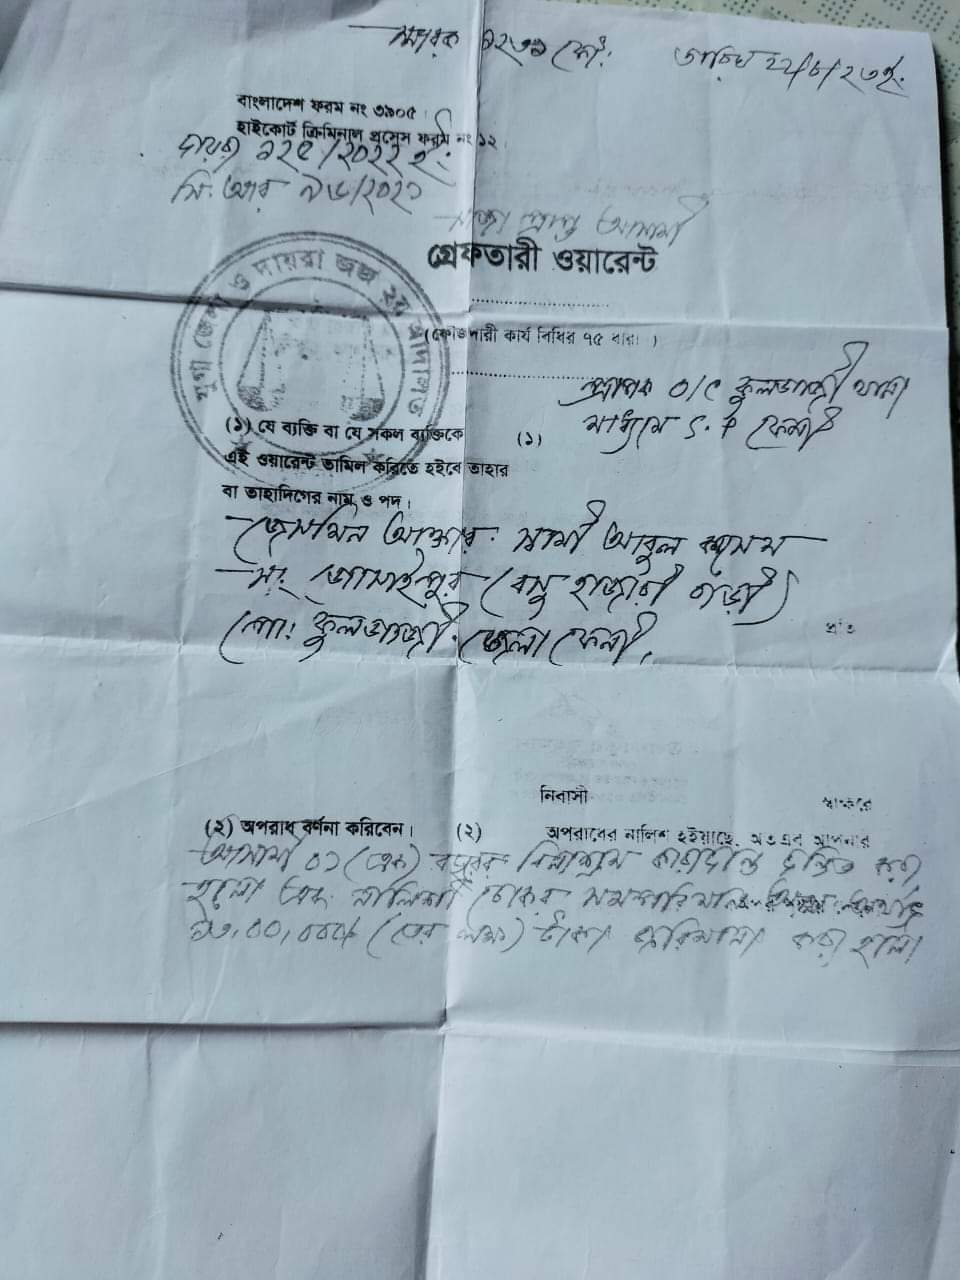 স্মারক ১২৩৯ কোঃ তারিখ ২২/৮/২৩ইং
বাংলাদেশ ফরম নং ৩৯০৫ ।
হাইকোর্ট ক্রিমিনাল প্রসেস ফরম নং ১২
দায়রা ১২৫/২০২২ ইং
সি. আর ৯৬/২০২১
সাজা প্রাপ্ত আসামী
গ্রেফতারী ওয়ারেন্ট
যুগ্ম জেলা ও দায়রা জজ ২য় আদালত
(ফৌজদারী কার্য বিধির ৭৫ ধারা )
প্রাপক ০/c ফুলগাজী থানা
মাধ্যমে S.P ফেনী
(১) যে ব্যক্তি বা যে সকল ব্যক্তিকে (১)
এই ওয়ারেন্ট তামিল করিতে হইবে তাহার
বা তাহাদিগের নাম ও পদ ।
জেসমিন আক্তার স্বামী আবুল কাসেম
সাং জোসাইপুর ( হাজারী বাড়ী)
থানা ফুলগাজী জেলা ফেনী,
প্রতি
নিবাসী স্বাক্ষরে
(২) অপরাধ বর্ণনা করিবেন । (২) অপরাধের নালিশ হইয়াছে, অতএব আপনার
আসামী ০১ (এক) বৎসরের বিনাশ্রম কারাদন্ডে দন্ডিত করা
হলো এবং নালিশী চেকের সমপরিমান অর্থাৎ
১৩,০০,০০০/ (তের লক্ষ) টাকা জরিমানা করা হলো